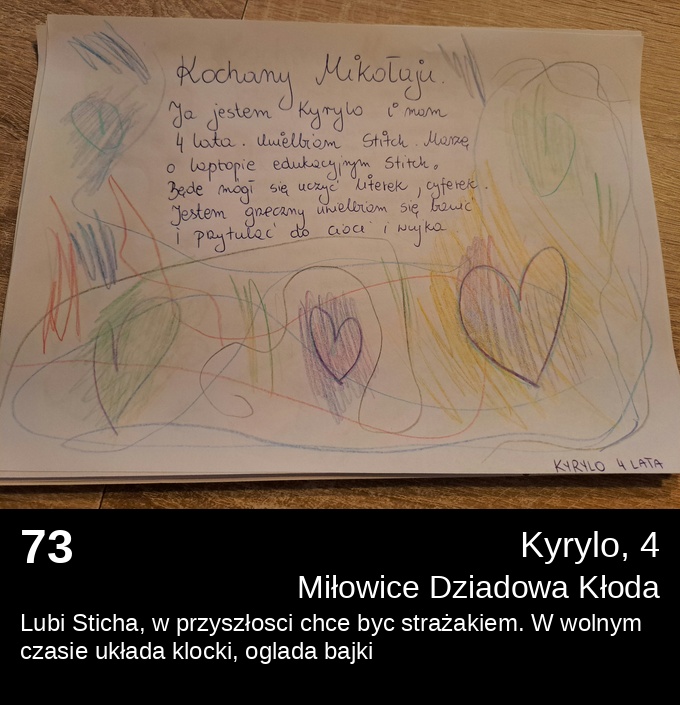 Kochany Mikołaju.
Ja jestem Kyrylo i mam
4 lata. Uwielbiam Stitch. Marzę
o laptopie edukacyjnym Stitch.
Będe mógł się uczyć literek, cyferek.
Jestem grzeczny uwielbiam się bawić
i przytulać do cioci i wujka
KYRYLO 4 LATA
73
Kyrylo, 4
Miłowice Dziadowa Kłoda
Lubi Sticha, w przyszłosci chce byc strażakiem. W wolnym
czasie układa klocki, oglada bajki